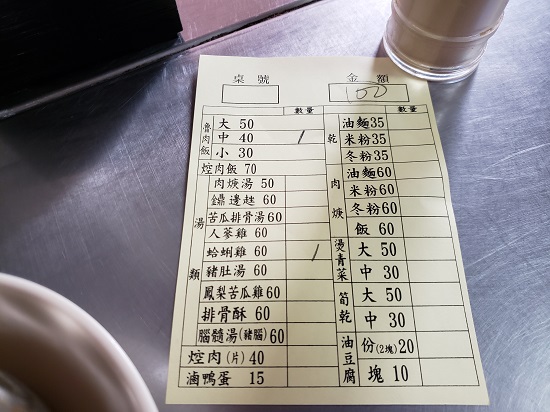 桌號 金額
100
數量 數量
魯肉飯 大 50
中 40 /
小 30
焢肉飯 70
湯類 肉焿湯 50
鼎邊趖 60
苦瓜排骨湯 60
人蔘雞 60
蛤蜊雞 60 /
豬肚湯 60
鳳梨苦瓜雞 60
排骨酥 60
腦髓湯(豬腦) 60
焢肉(片) 40
滷鴨蛋 15
乾 油麵 35
米粉 35
冬粉 35
肉焿 油麵 60
米粉 60
冬粉 60
飯 60
燙青菜 大 50
中 30
筍乾 大 50
中 30
油豆腐 份(2塊) 20
塊 10